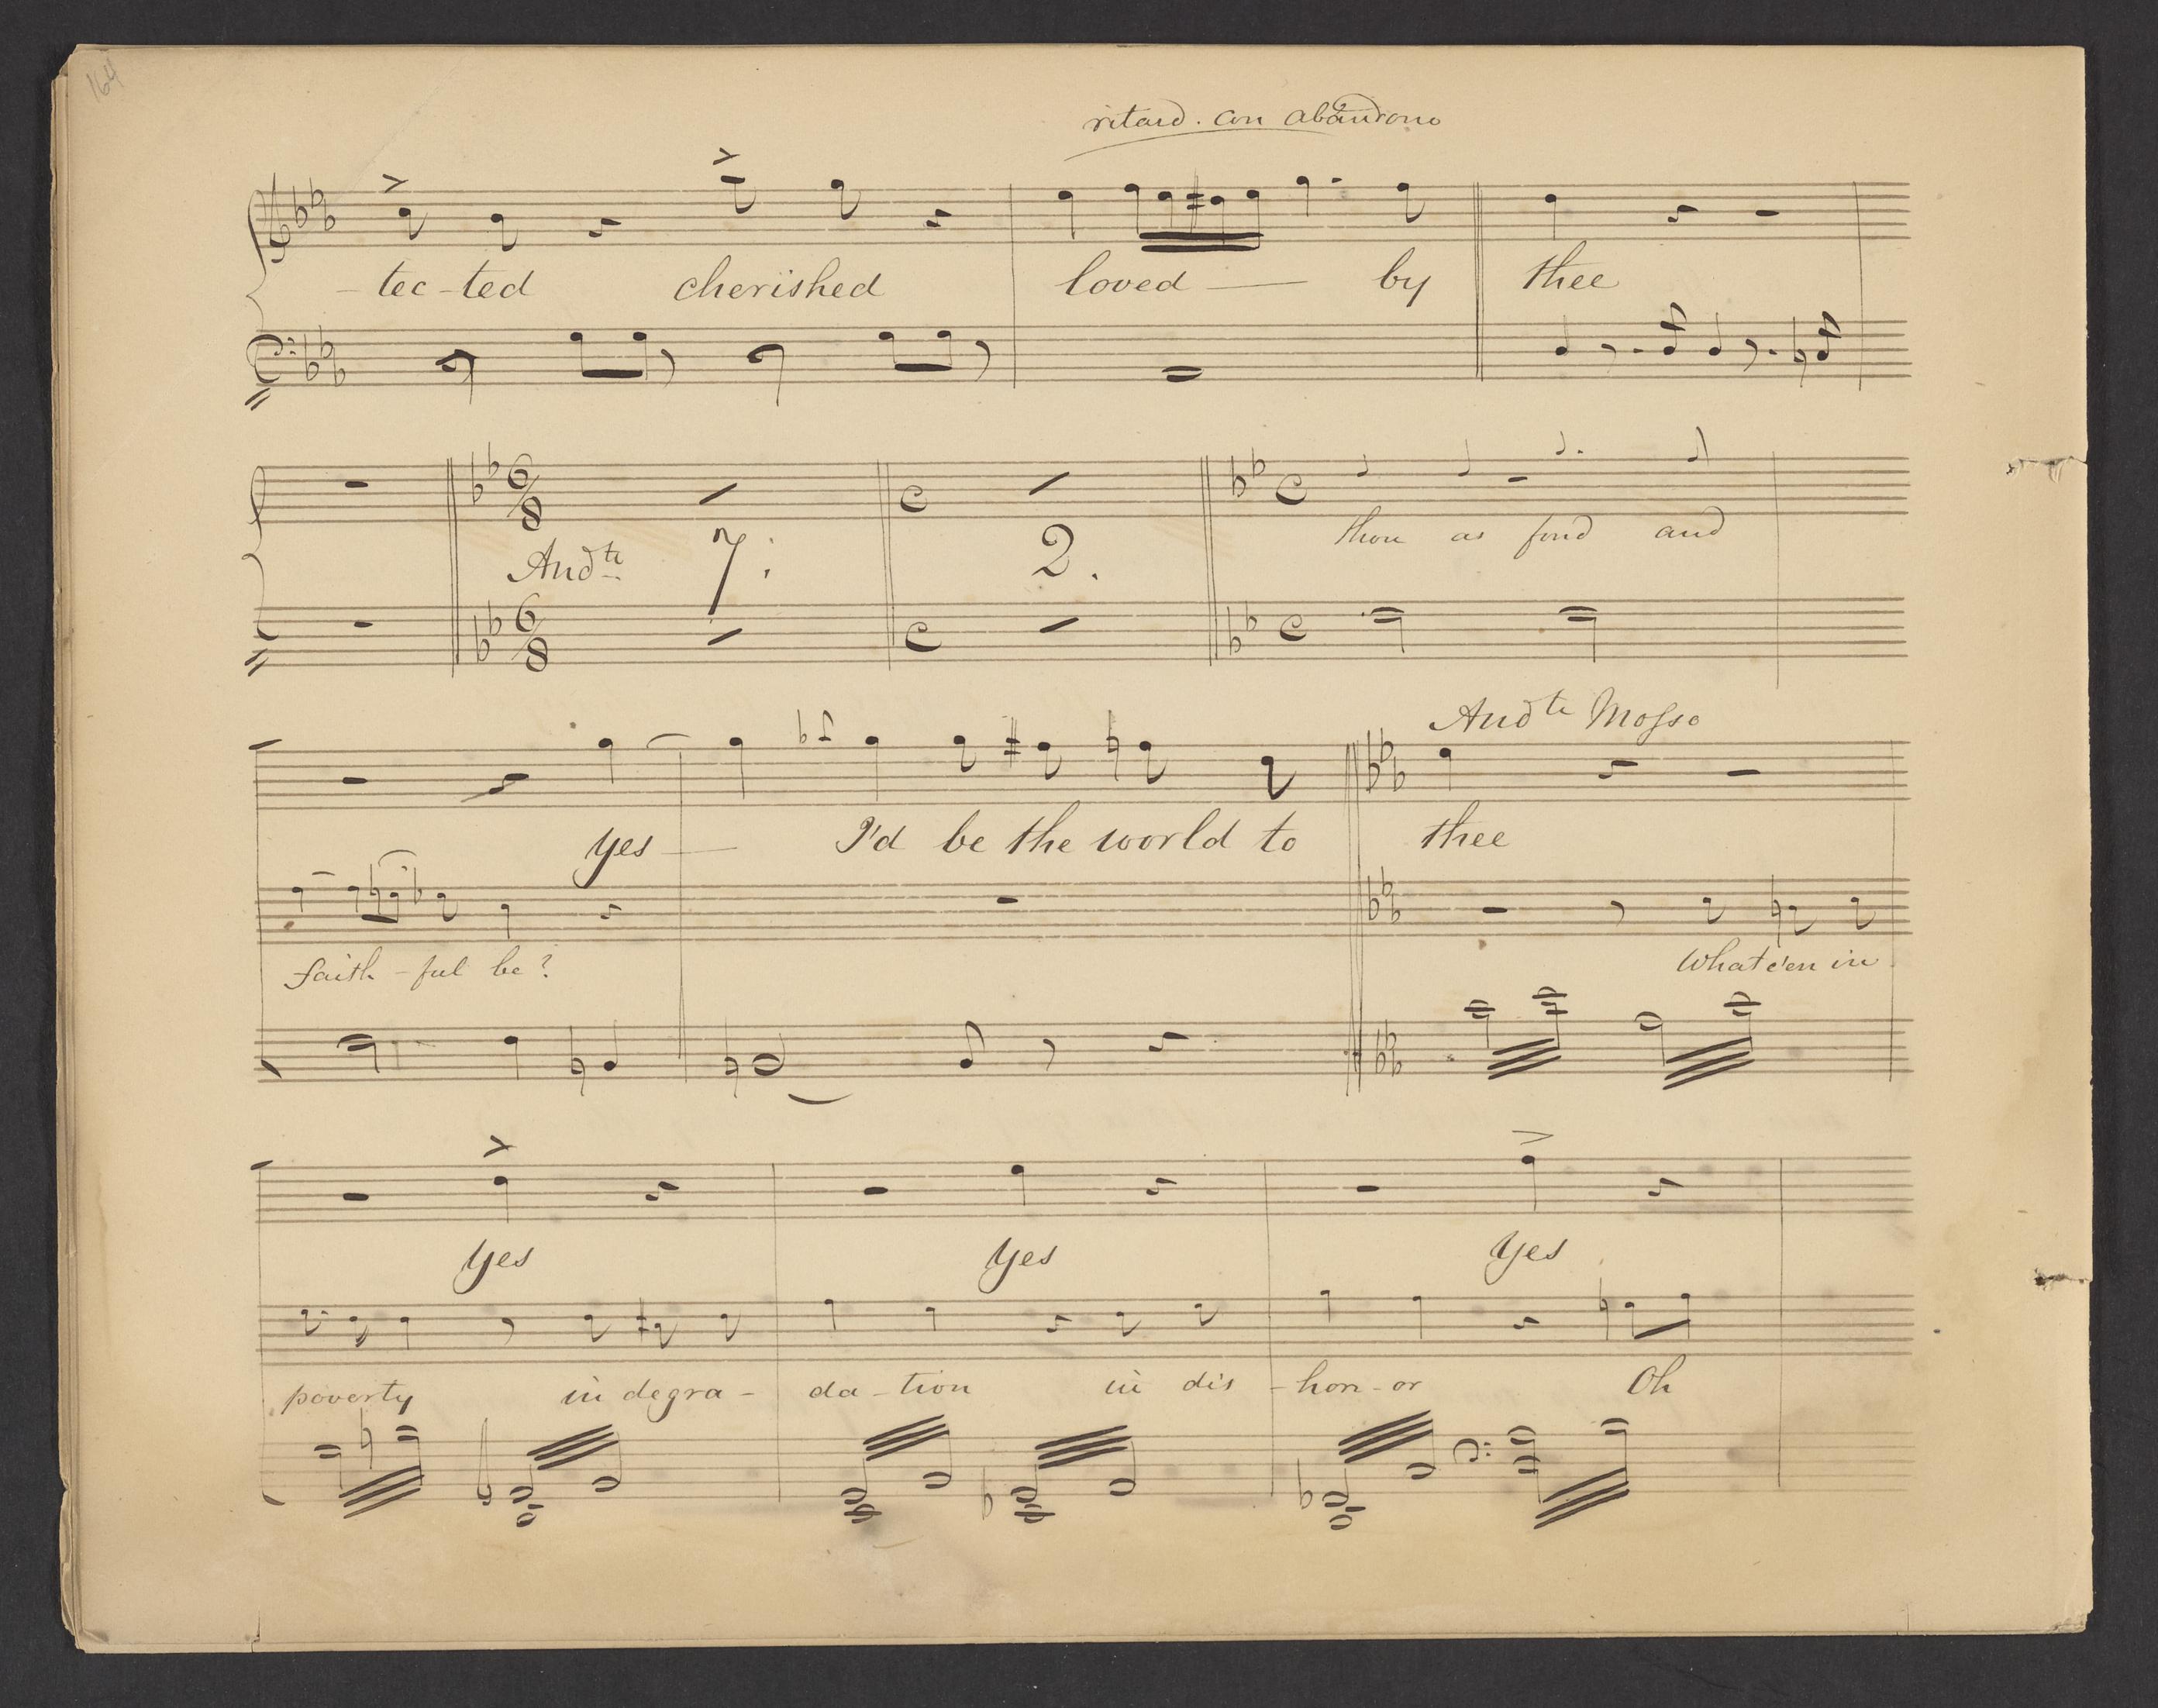 164
ritard. con abandono
- tec - ted cherished loved — by thee
6/8 C C
Andte 7. 2. thou as fond and
6/8 C C
Andte Mosso
yes — I'd be the world to thee
faith - ful be? What e'en in
yes yes yes
poverty in degra - da - tion in dis - hon - or Oh